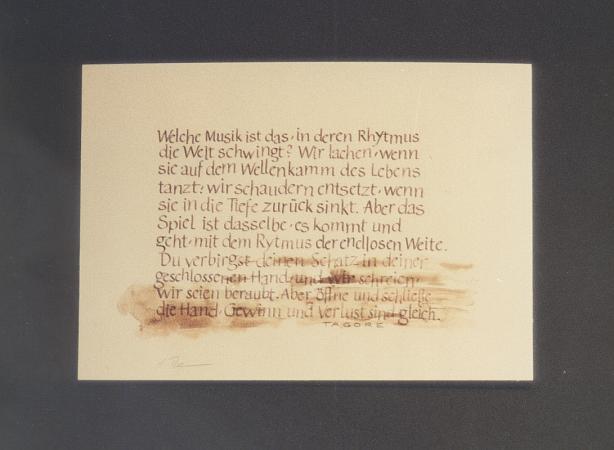 Welche Musik ist das, in deren Rhytmus
die Welt schwingt? Wir lachen, wenn
sie auf dem Wellenkamm des Lebens
tanzt: wir schaudern entsetzt, wenn
sie in die Tiefe zurück sinkt. Aber das
Spiel ist dasselbe, es kommt und
geht, mit dem Rytmus der endlosen Weite.
Du verbirgst deinen Schatz in deiner
geschlossenen Hand, und wir schreien,
wir seien beraubt. Aber öffne und schließe
die Hand, Gewinn und Verlust sind gleich.
TAGORE